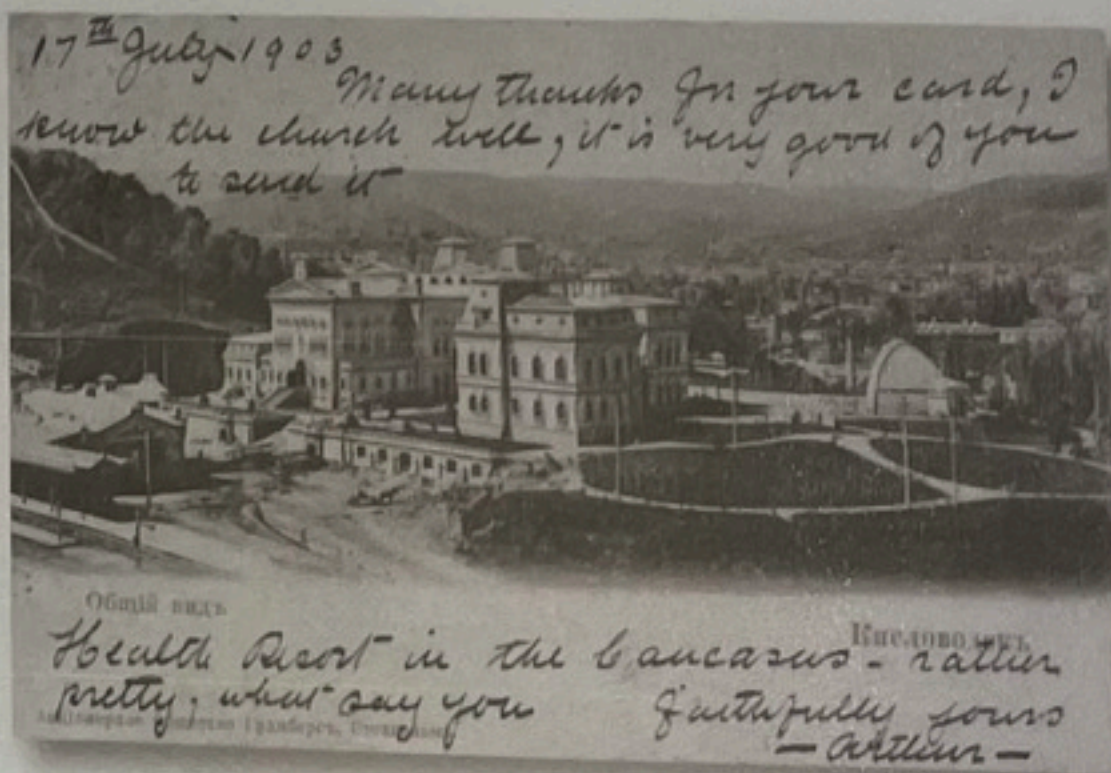 17th July 1903
Many thanks for your card, I
know the church well, it is very good of you
to send it
Общій видъ
Кисловодскъ
Health Resort in the Caucasus - rather
pretty, what say you
Faithfully yours
Акціонерное Общество Гранбергъ, Стокгольмъ
- Arthur -